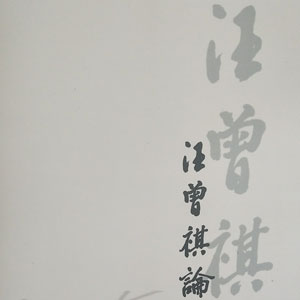 汪曾祺
汪曾祺論